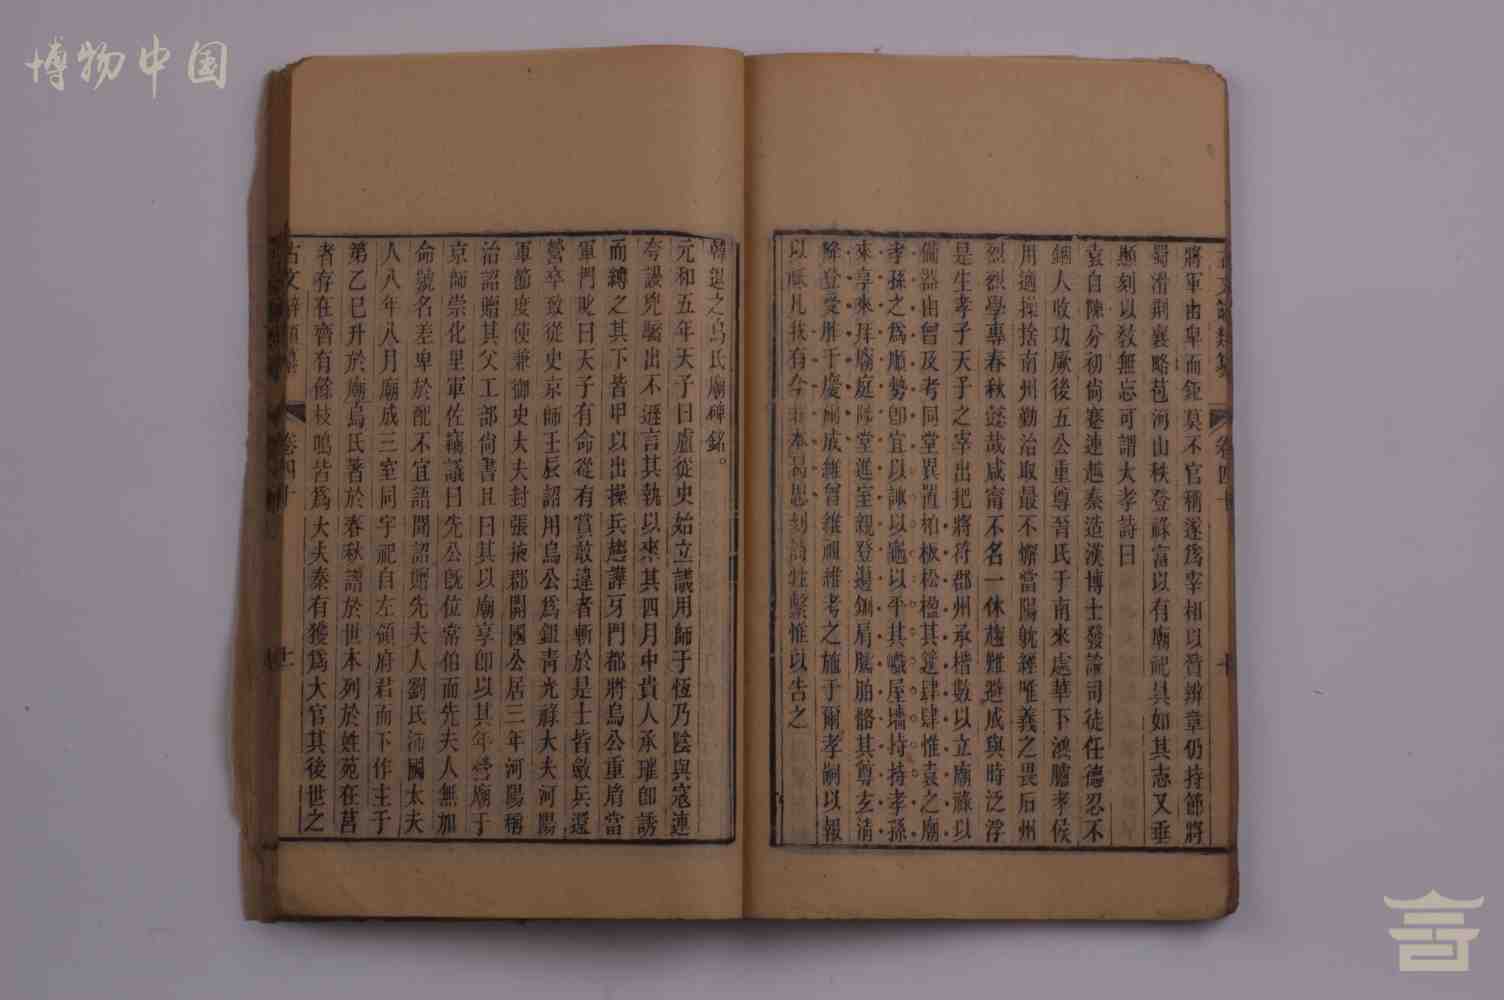 博物中国
將軍由卑而鉅莫不官稱遂為宰相以晋辨章仍持節將
蜀滑荆襄略苞河山秩登祿富以有廟祀具如其志又垂
顯刻以敎無忘可謂大孝詩曰
袁自陳分初尙蹇連越秦造漢博士發論司徒任德忍不
錮人收功厥後五公重尊晉氏于南來處華下鴻臚孝侯
用適操捨南州勤治取最不懈當陽躭經唯義之畏石州
烈烈學專春秋懿哉咸甯不名一休趨難避成與時泛浮
是生孝子天子之宰出把將符郡州承楷數以立廟祿以
備器由曾及考同堂異置柏板松楹其筵肆肆惟袁之廟
孝孫之爲順勢卽宜以諏以龜以平其巇屋墻持持孝孫
來享來拜廟庭陟堂進室親登籩鉶肩臑胉骼其尊玄清
降登受胙于慶爾成維曾維祖維考之施于爾孝嗣以報
以祇凡我有今非本曷思刻詩牲繫惟以告之
卷四十
韓退之烏氏廟碑銘。
元和五年天子曰盧從史始立議用師于恆乃陰與寇連
夸謾兇驕出不遜言其執以來其四月中貴人承璀卽誘
而縛之其下皆甲以出操兵趨譁牙門都將烏公重胤當
軍門叱曰天子有命從有賞敢違者斬於是士皆斂兵還
營卒致從史京師壬辰詔用烏公爲銀青光祿大夫河陽
軍節度使兼御史大夫封張掖郡開國公居三年河陽稱
治詔贈其父工部尙書且曰其以廟享卽以其年營廟于
京師崇化里軍佐竊議曰先公旣位常伯而先夫人無加
命號名差卑於配不宜語聞詔贈先夫人劉氏沛國太夫
人八年八月廟成三室同宇祀自左領府君而下作主于
第乙巳升於廟烏氏著於春秋譜於世本列於姓苑在莒
者存在齊有餘枝鳴皆爲大夫秦有獲爲大官其後世之
古文辭類纂
卷四十